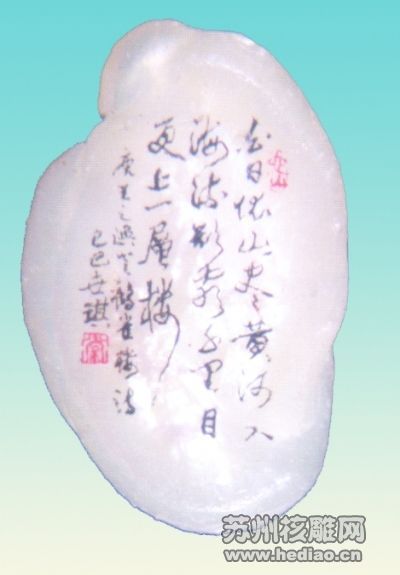 白日依山尽黄河入
海流欲穷千里目
更上一層楼
唐王之涣登鹳雀楼诗
己巳安琪
苏州核雕网
www.hediao.cn